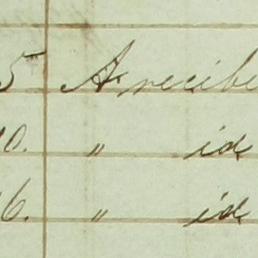 5 A recibe
0. " id
6. " id